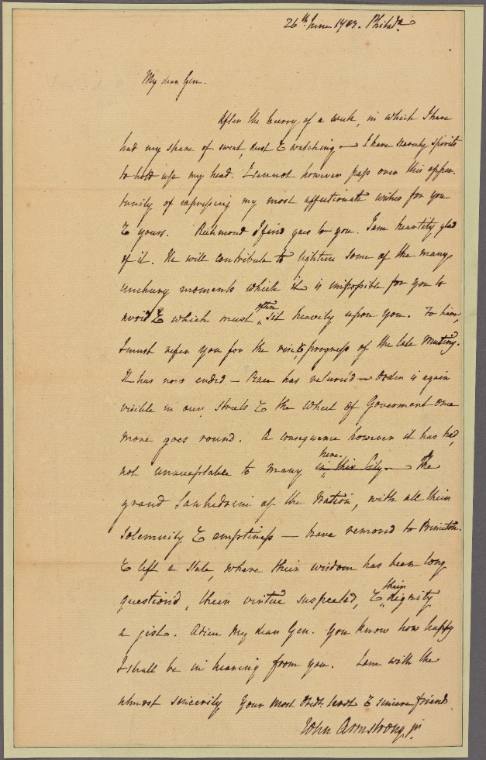 26th June 1783. Philada.
My dear Gen.
After the hurry of a week, in which I have
had my share of sweat, dust & watching — I have scarcely spirits
to hold up my head. I cannot however pass over this oppor-
tunity of expressing my most affectionate wishes for you
& yours. Richmond I find goes to you. I am heartily glad
of it. He will contribute to lighten some of the many
unchary moments which it is impossible for you to
avoid & which must often sit heavily upon you. To him,
I must refer you for the rise & progress of the late Mutiny.
It has now ended — Peace has return'd — Order is again
visible in our Streets & the Wheel of Government once
more goes round. A consequence however it has had,
not unacceptable to many here in this City — The
grand Sanhedrim of the Nation, with all their
solemnity & emptiness — have removed to Princeton
& left a State, where their wisdom has been long
question'd, their virtue suspected, & their dignity
a jest. Adieu My dear Gen. You know how happy
I shall be in hearing from you. I am with the
utmost sincerity Your most Obedt. servt & sincere friend
John Armstrong, jr.